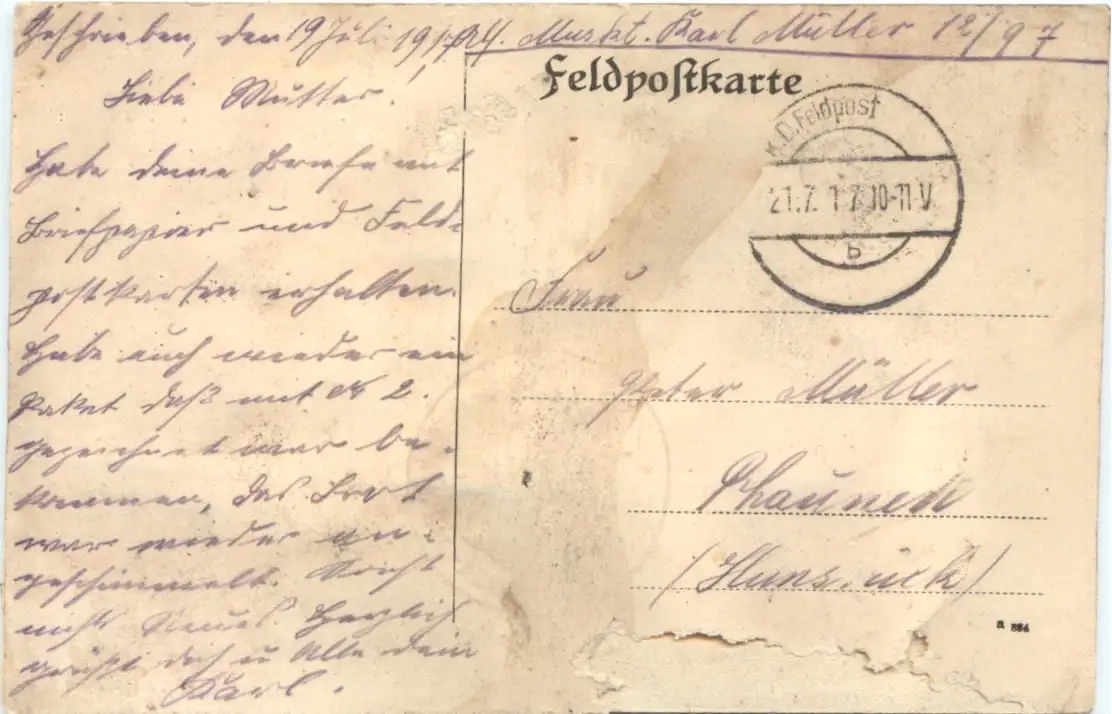 Geschrieben, den 19 Juli 1917
Abs. Muskt. Karl Müller 12/97
Liebe Mutter!
Habe deine Briefe mit
Briefpapier und Feld-
postkarten erhalten.
Habe auch wieder ein
Paket daß mit № 2.
gezeichnet war be-
kommen, das Brot
war wieder an-
geschimmelt. Sonst
nichts Neues. Herzlich
grüßt dich u Alle dein
Karl.
Feldpostkarte
K.D. Feldpost
21.7.17 10-11 V.
b
Frau
Peter Müller
Rhaunen
(Hunsrück)
a 884